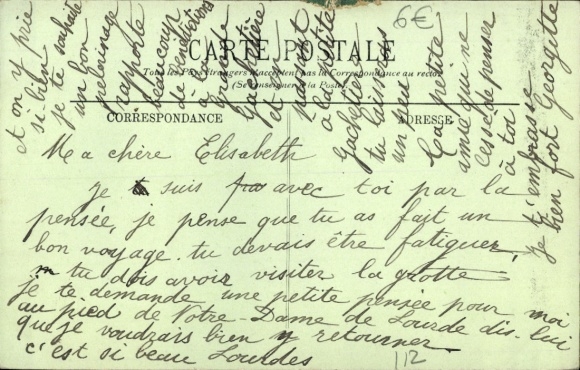 6€
CARTE POSTALE
Tous les Pays étrangers n'acceptent pas la Correspondance au recto
(Se renseigner à la Poste)
CORRESPONDANCE
ADRESSE
Ma chère Elisabeth
je suis avec toi par la
pensée, je pense que tu as fait un
bon voyage. tu devais être fatiguer,
tu dois avoir visiter la grotte
je te demande une petite pensée pour moi
au pied de Notre-Dame de Lourde dis-lui
que je voudrais bien y retourner
c'est si beau Lourdes
112
et on y prie
si bien
je te souhaite
un bon
pelerinage
rapporte
beaucoup
de bénédictions
à la
grande
et un
à la petite
tu laisses
un peu
La petite
amie qui ne
cesse de penser
à toi
je t'embrasse
bien fort Georgette